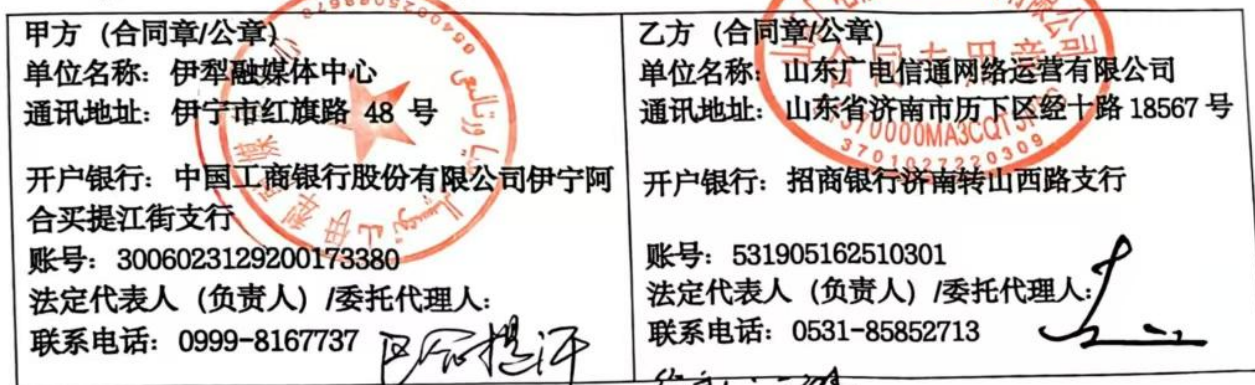 甲方（合同章/公章）
单位名称：伊犁融媒体中心
通讯地址：伊宁市红旗路 48 号
开户银行：中国工商银行股份有限公司伊宁阿
合买提江街支行
账号：3006023129200173380
法定代表人（负责人）/委托代理人：
联系电话：0999-8167737
乙方（合同章/公章）
单位名称：山东广电信通网络运营有限公司
通讯地址：山东省济南市历下区经十路 18567 号
开户银行：招商银行济南转山西路支行
账号：531905162510301
法定代表人（负责人）/委托代理人：
联系电话：0531-85852713
合同专用章
3701027220309